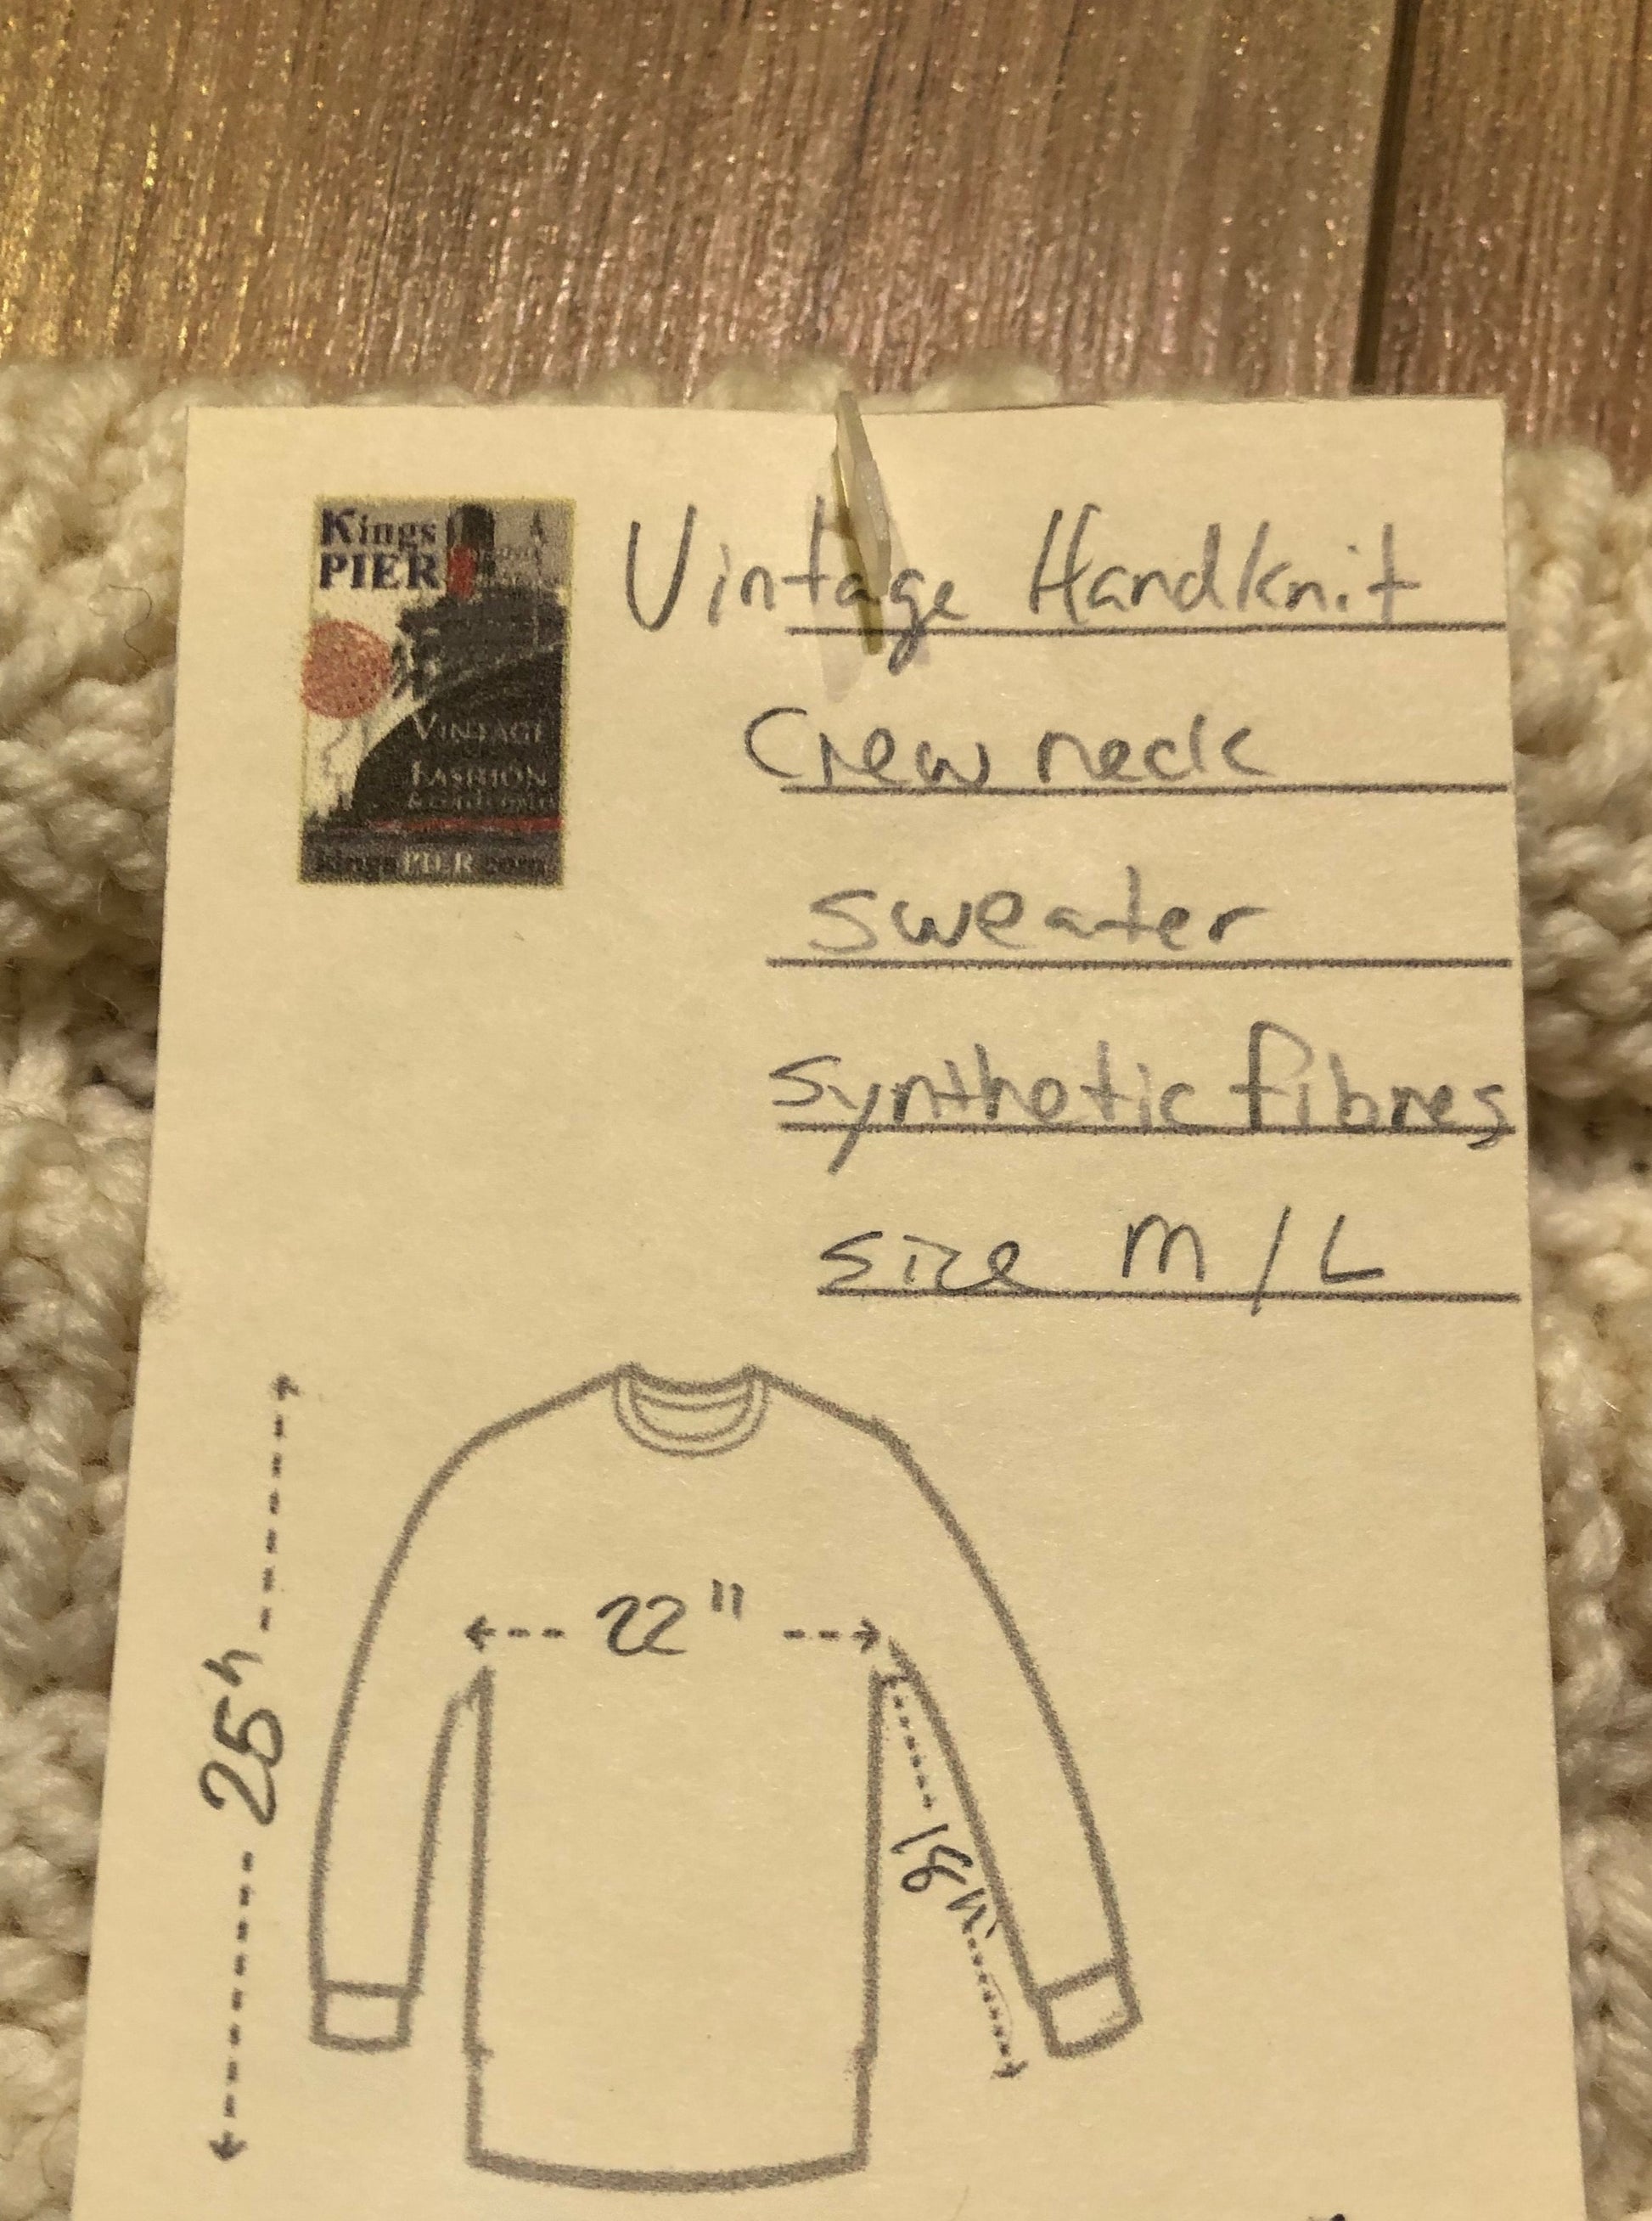 Kings
PIER
VINTAGE
FASHION
kingsPIER.com
Vintage Handknit
Crew neck
sweater
synthetic fibres
size M/L
22"
25"